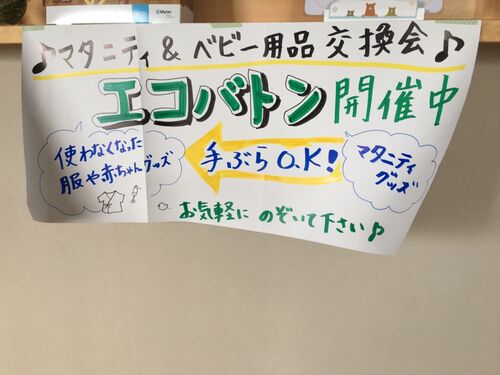 ♪マタニティ & ベビー用品交換会♪
エコバトン開催中
使わなくなった
服や赤ちゃんグッズ
手ぶらO.K!
マタニティ
グッズ
お気軽に のぞいて下さい♪